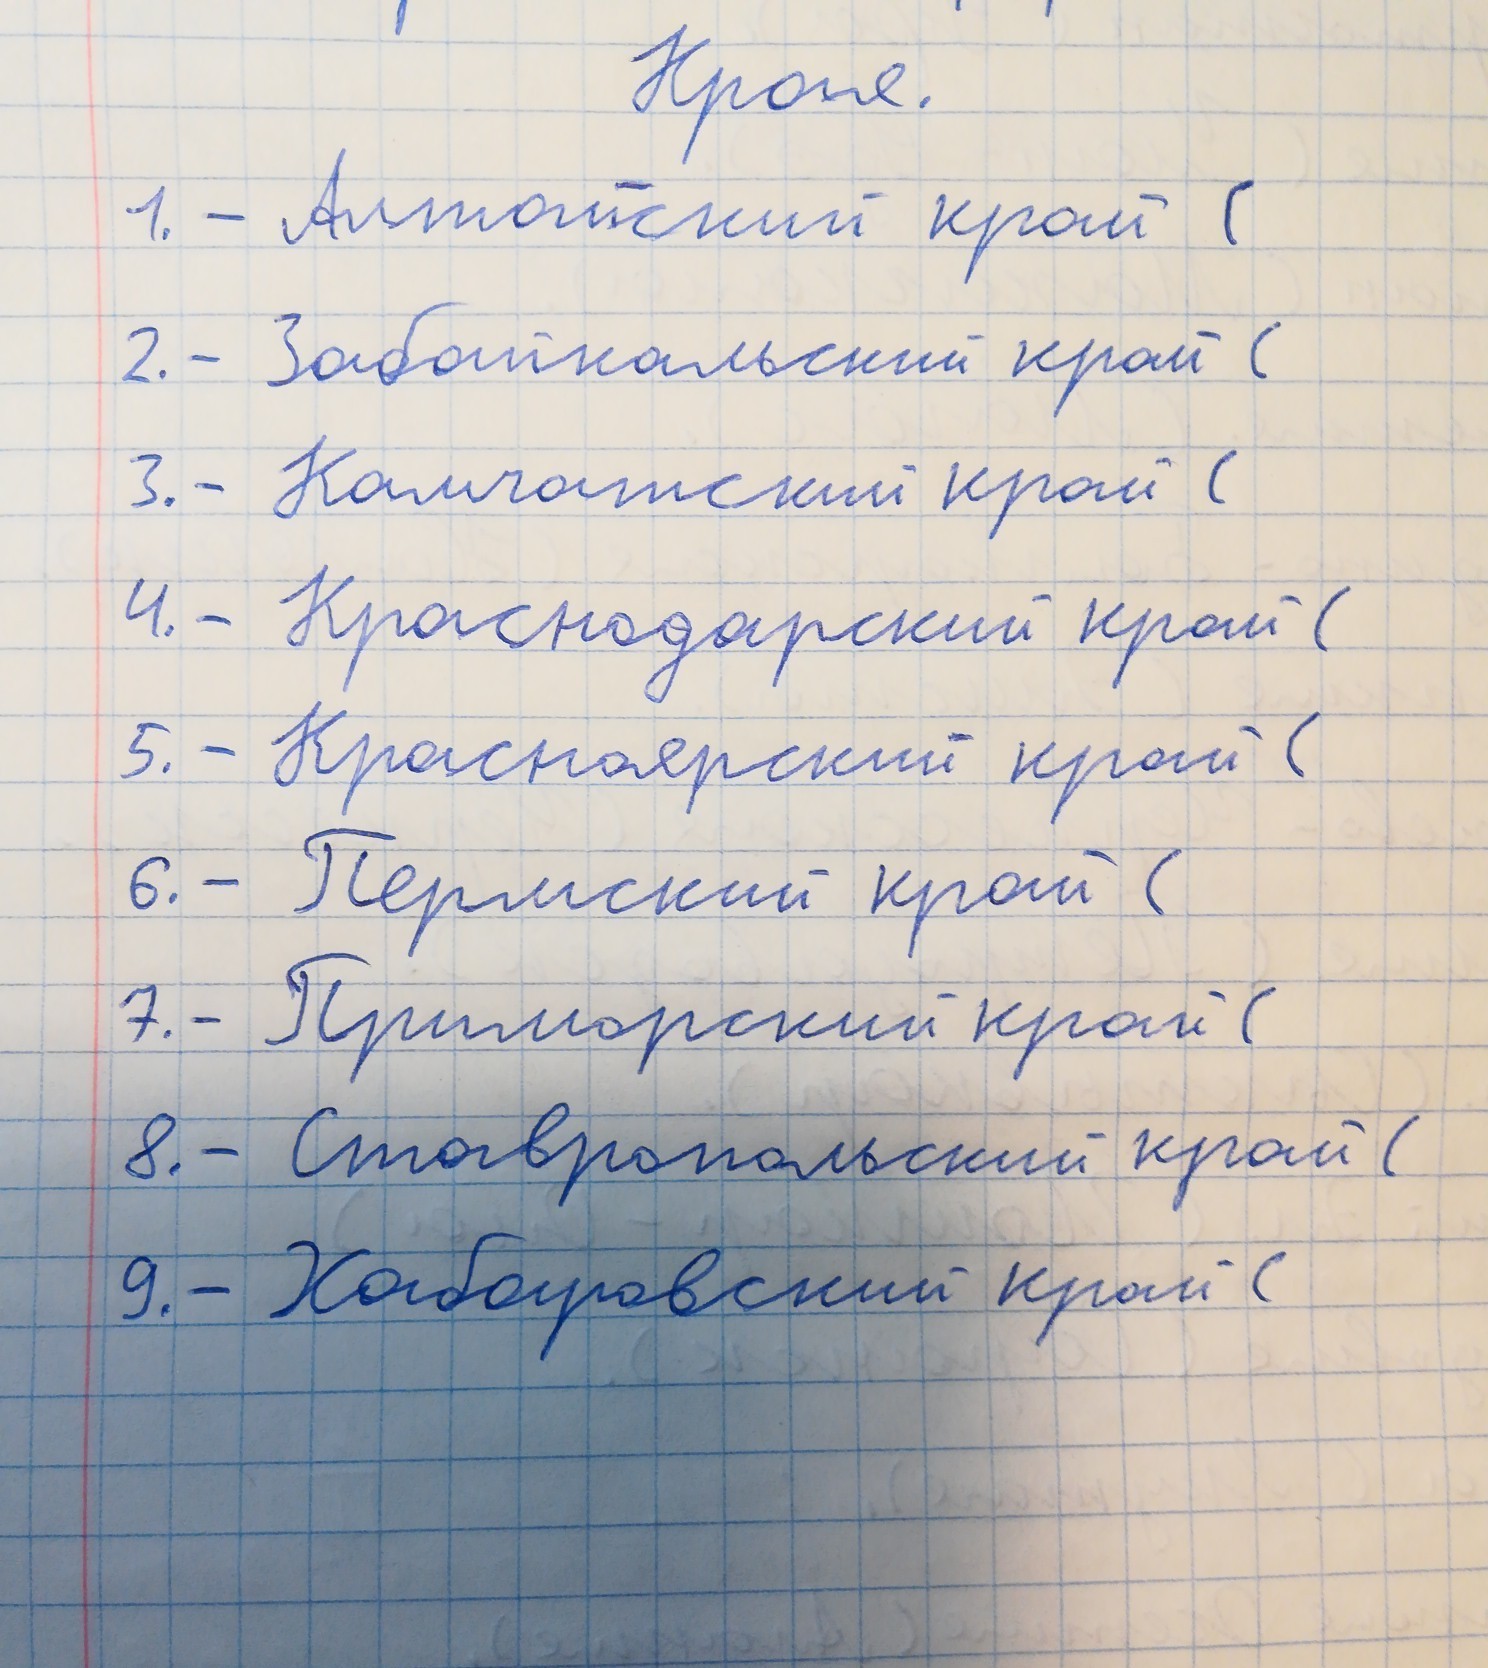 Края.
1. - Алтайский край (
2. - Забайкальский край (
3. - Камчатский край (
4. - Краснодарский край (
5. - Красноярский край (
6. - Пермский край (
7. - Приморский край (
8. - Ставропольский край (
9. - Хабаровский край (